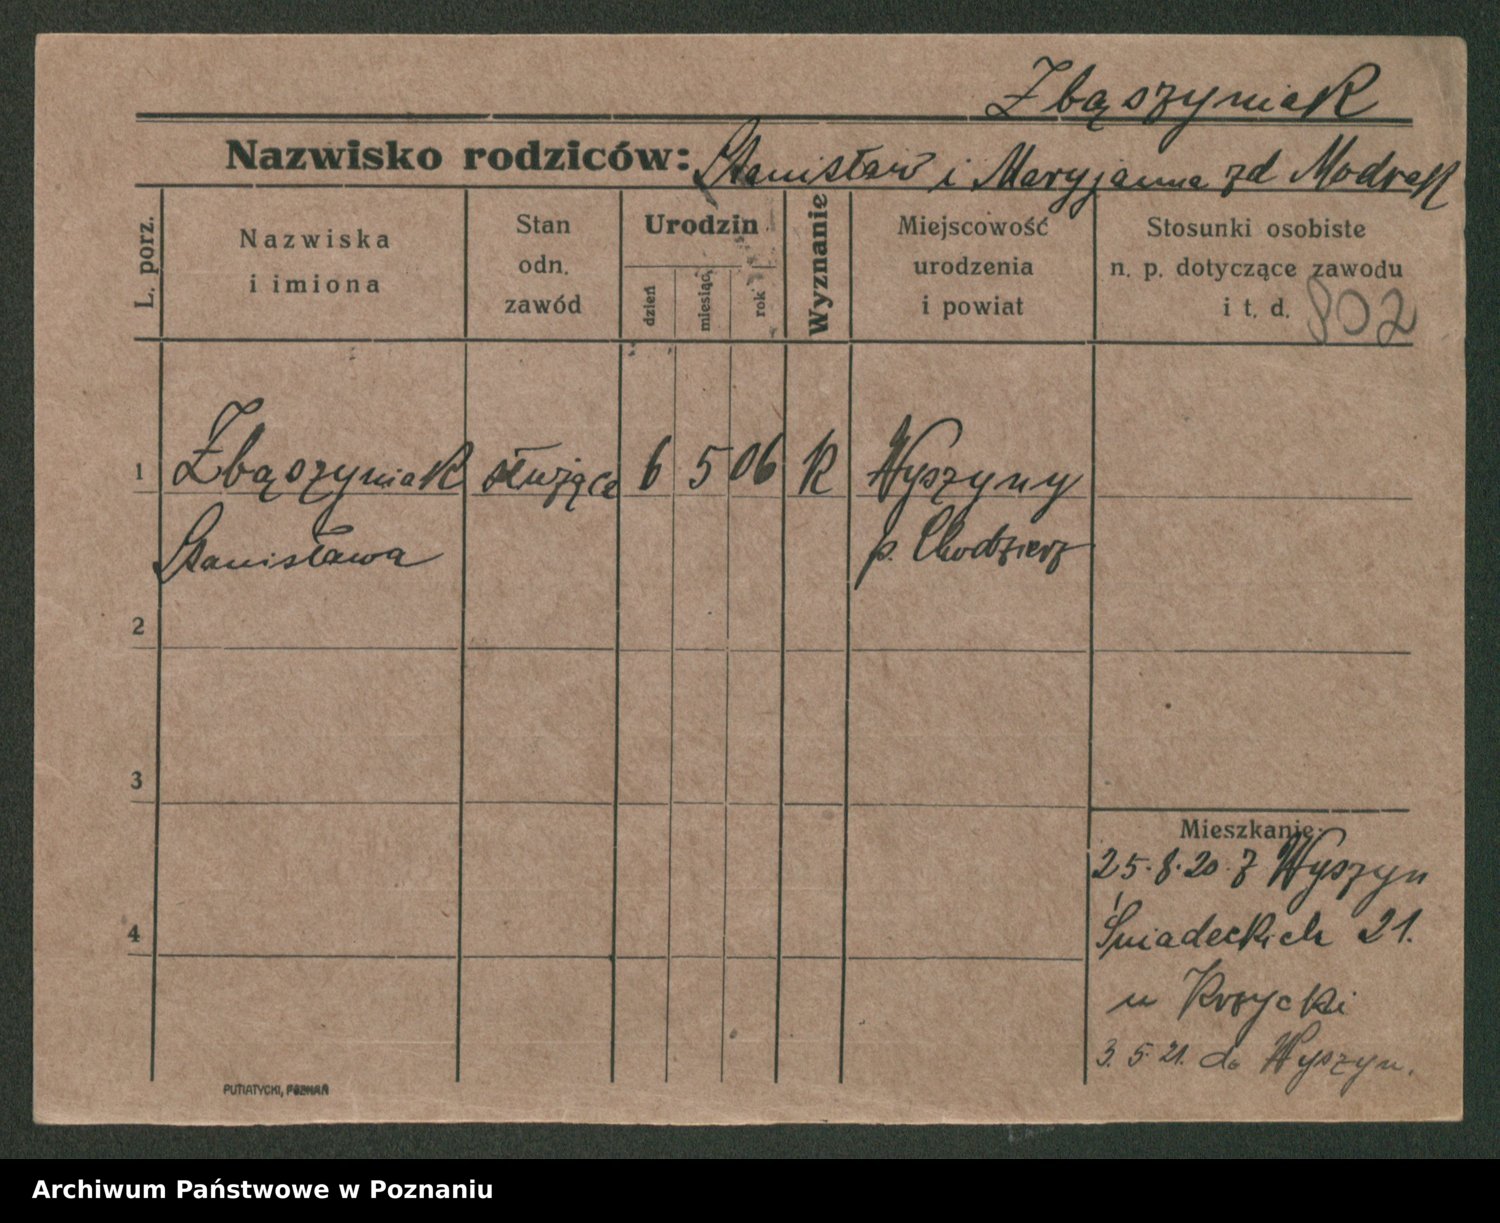 Zbąszyniak
Nazwisko rodziców: Stanisław i Maryjanna zd Modrak
L. porz.
Nazwiska
i imiona
Stan
odn.
zawód
Urodzin
dzień
miesiąc
rok
Wyznanie
Miejscowość
urodzenia
i powiat
Stosunki osobiste
n. p. dotyczące zawodu
i t. d.
802
1 Zbąszyniak służąca 6 5 06 k Wyszyny
Stanisława p. Chodzierz
2
3
4
Mieszkanie:
25.8.20 z Wyszyn
Śniadeckich 21.
u Krzycki
3. 5 21. do Wyszyn.
PUTIATYCKI, POZNAŃ
Archiwum Państwowe w Poznaniu